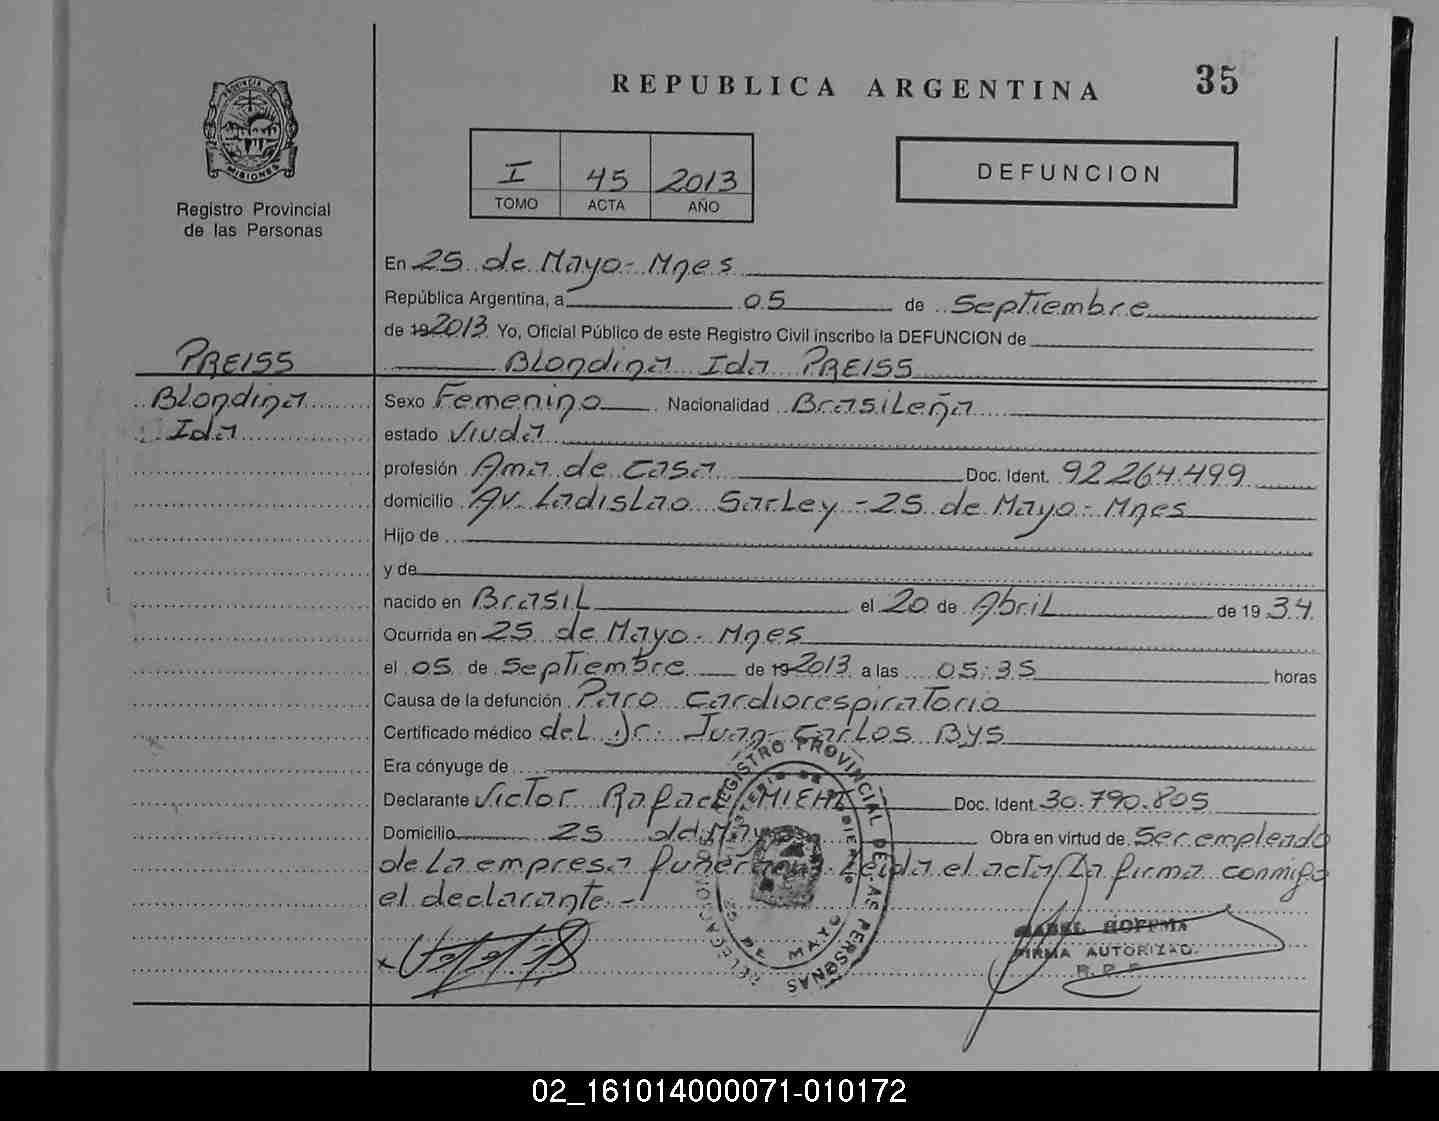 REPUBLICA ARGENTINA
35
PROVINCIA DE
MISIONES
Registro Provincial
de las Personas
I 45 2013
TOMO ACTA AÑO
DEFUNCION
En 25 de Mayo - Mnes
República Argentina, a 05 de Septiembre
de 192013 Yo, Oficial Público de este Registro Civil inscribo la DEFUNCION de
PREISS
Blondina Ida PREISS
Blondina
Ida
Sexo Femenino Nacionalidad Brasileña
estado Viuda
profesión Ama de casa Doc. Ident. 92264.499
domicilio Av. Ladislao Sarley - 25 de Mayo - Mnes
Hijo de
y de
nacido en Brasil el 20 de Abril de 19 34.
Ocurrida en 25 de Mayo - Mnes
el 05 de Septiembre de 192013 a las 05:35 horas
Causa de la defunción Paro cardiorespiratorio
Certificado médico del Dr. Juan Carlos BYS
Era cónyuge de
Declarante Victor Rafael MIEHL Doc. Ident. 30.790.805
Domicilio 25 de Mayo Obra en virtud de Ser empleado
de la empresa funeraria. Leida el acta, la firma conmigo
el declarante. -
REGISTRO PROVINCIAL DE LAS PERSONAS
DELEGACION
25 DE MAYO
HOFFMA
FIRMA AUTORIZAD.
R. P. P.
02_161014000071-010172